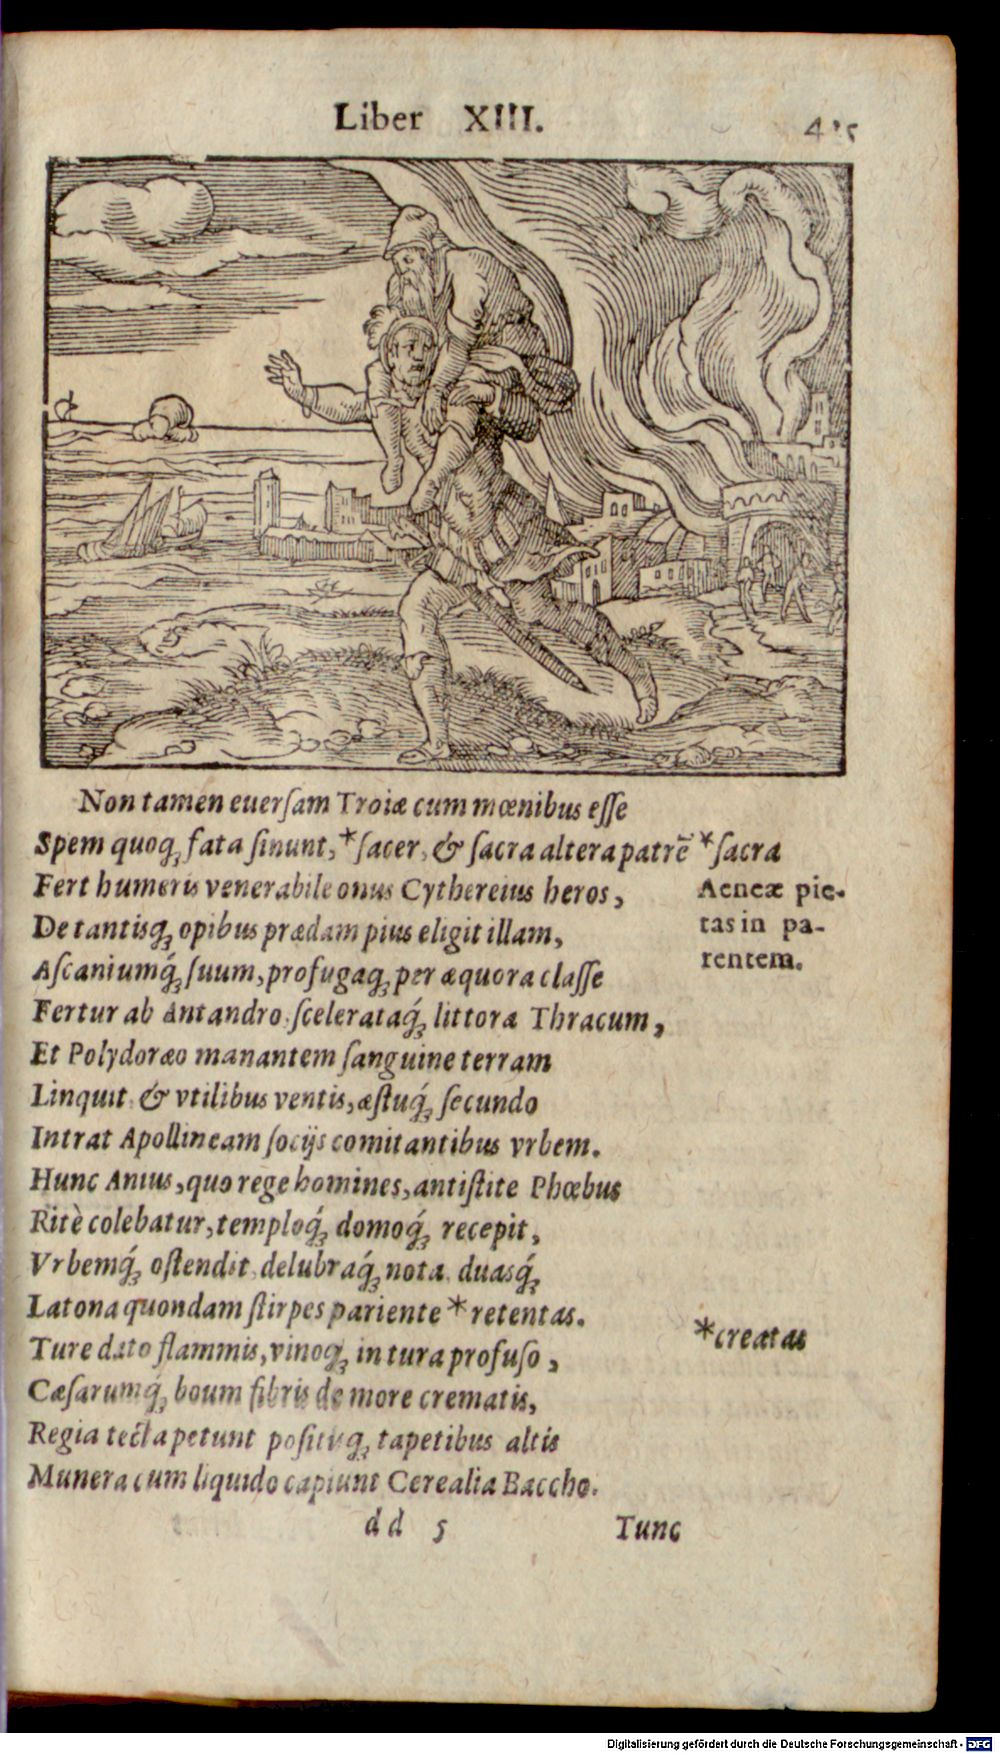 Liber XIII. 415
Non tamen euerſam Troiæ cum mœnibus eſſe
Spem quoq; fata ſinunt, *ſacer, & ſacra altera patrē *ſacra
Fert humeris venerabile onus Cythereius heros,
Aeneæ pie-
tas in pa-
rentem.
De tantisq; opibus prædam pius eligit illam,
Aſcaniumq́; ſuum, profugaq; per æquora claſſe
Fertur ab Antandro. ſcelerataq́; littora Thracum,
Et Polydoræo manantem ſanguine terram
Linquit. & vtilibus ventis, æſtuq́; ſecundo
Intrat Apollineam ſocijs comitantibus vrbem.
Hunc Anius, quo rege homines, antiſtite Phœbus
Ritè colebatur, temploq́; domoq́; recepit,
Vrbemq́; oſtendit, delubraq́; nota, duasq́;
Latona quondam ſtirpes pariente *retentas.
*creatas
Ture dato flammis, vinoq; in tura profuſo,
Cæſarumq́; boum fibris de more crematis,
Regia tecta petunt poſituq; tapetibus altis
Munera cum liquido capiunt Cerealia Baccho.
dd 5 Tunc
Digitalisierung gefördert durch die Deutsche Forschungsgemeinschaft - DFG